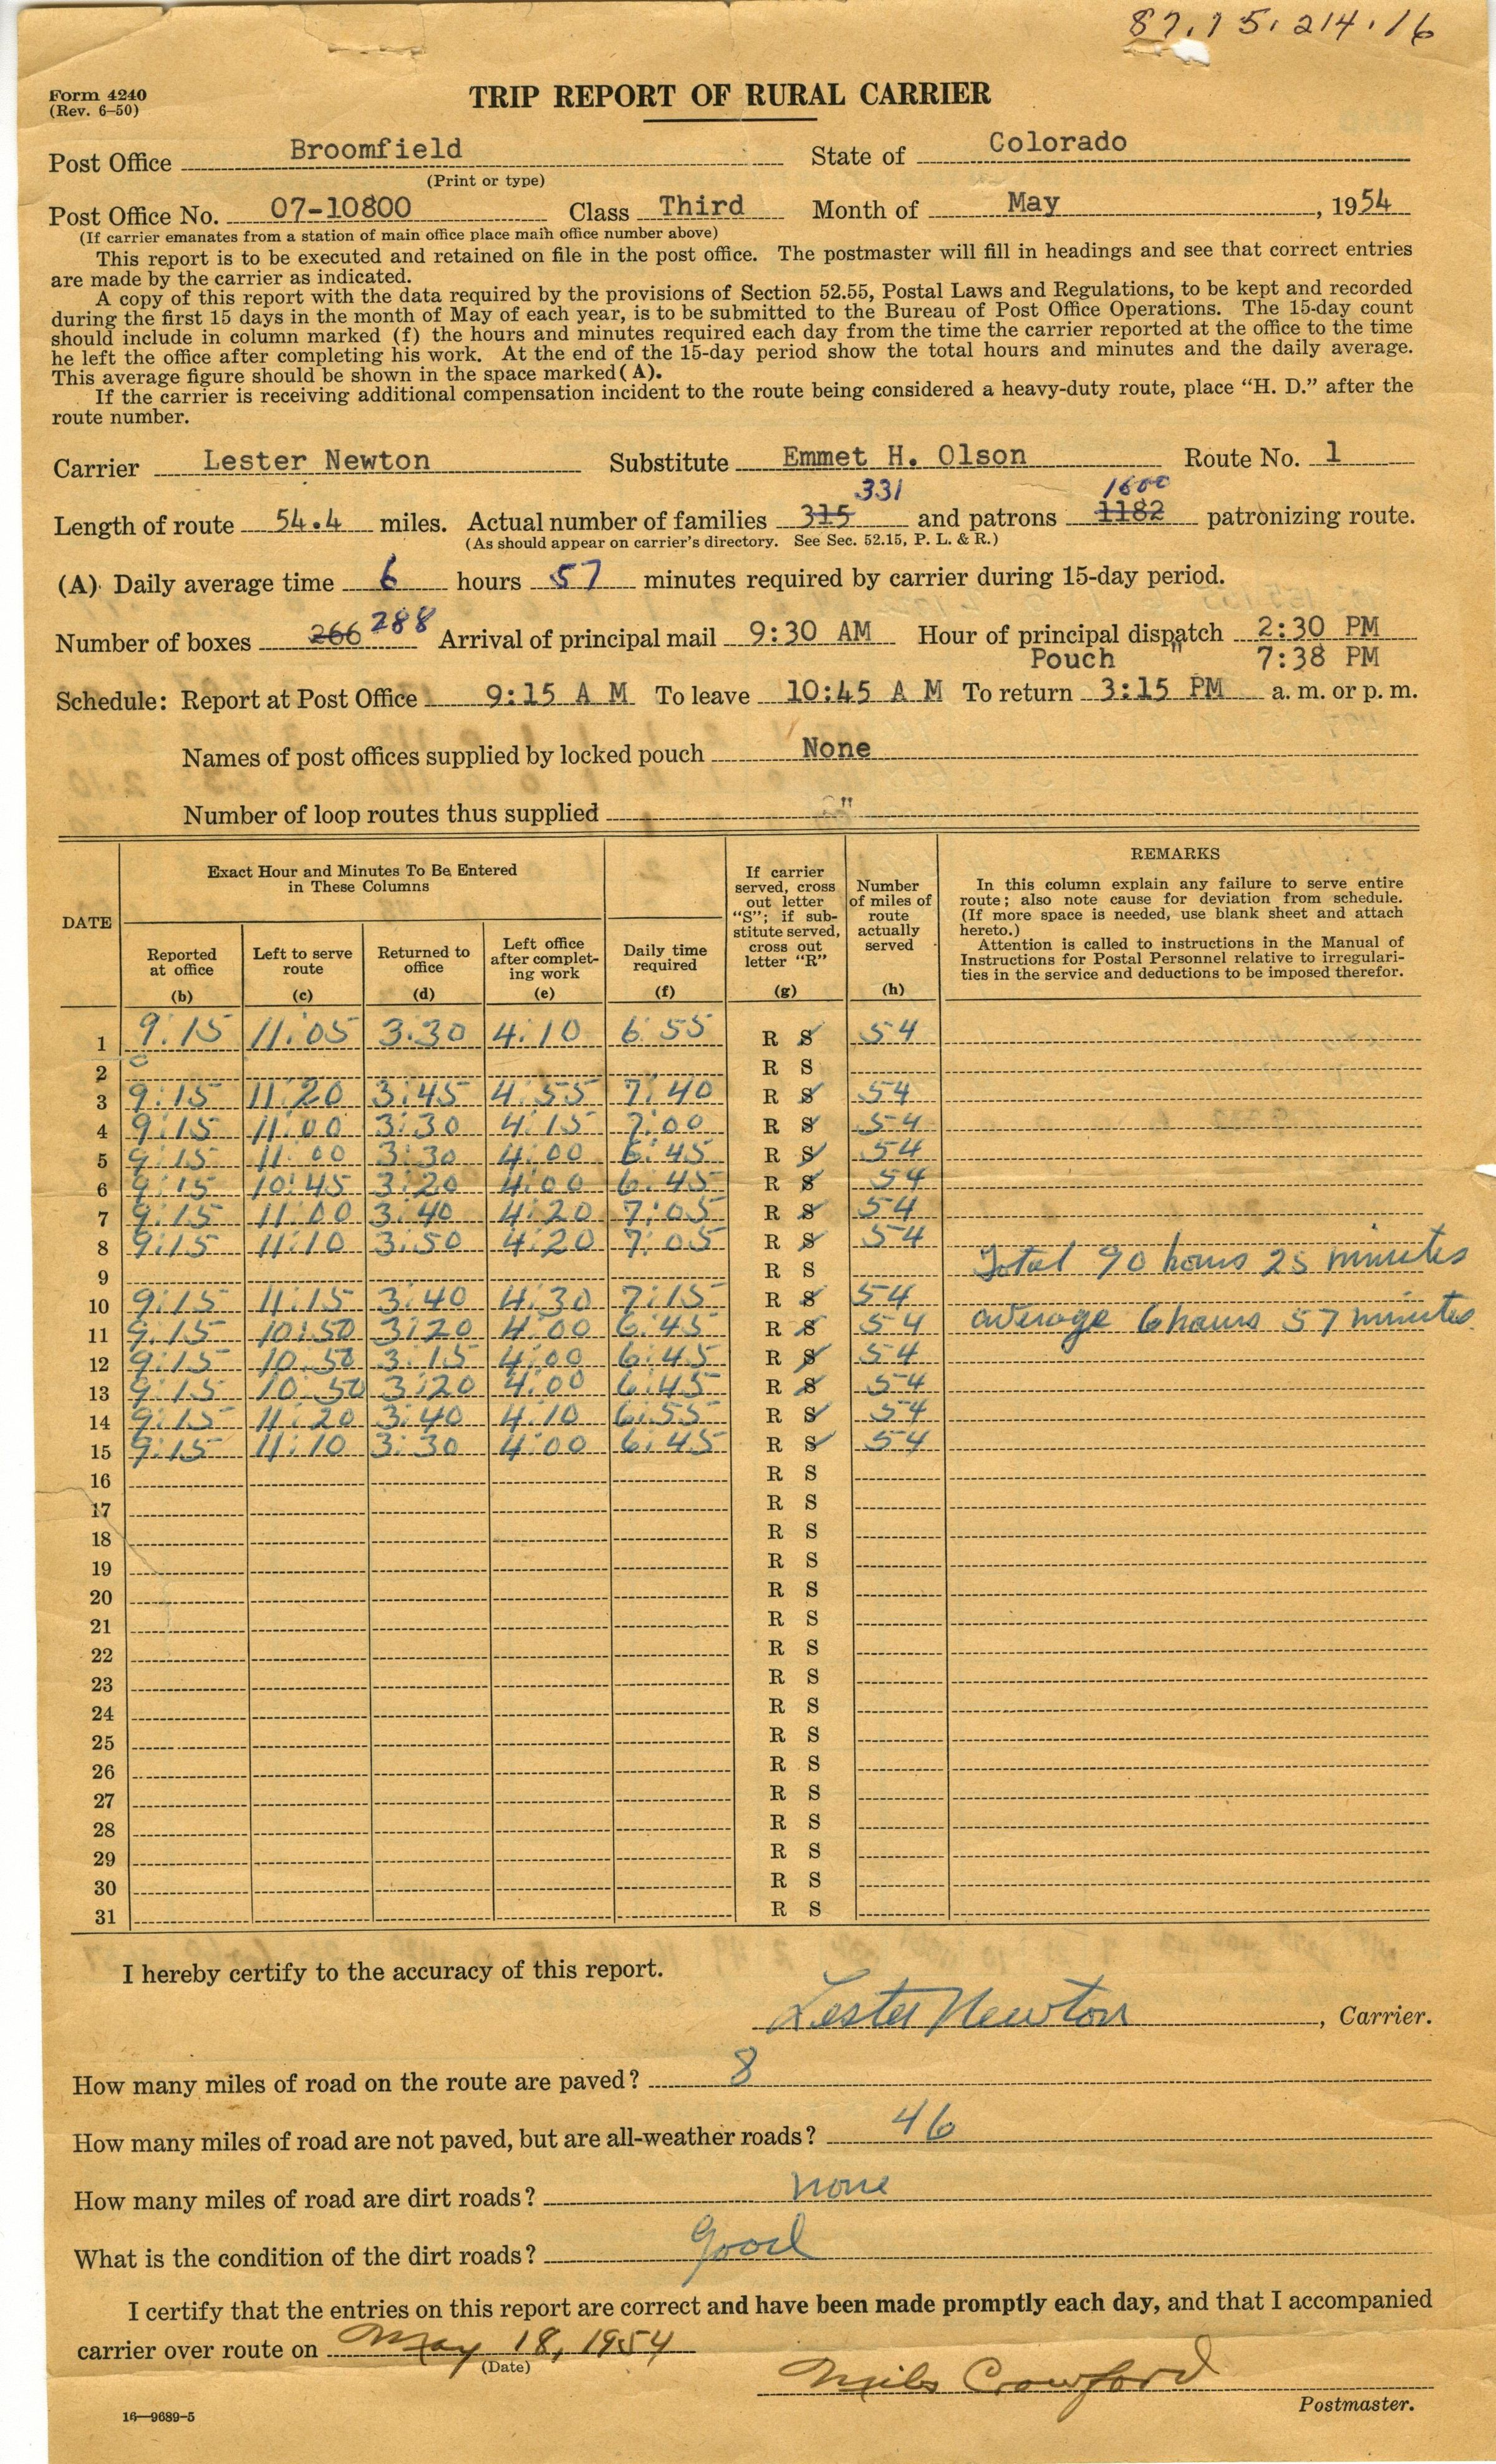 87.15.214.16
Form 4240
(Rev. 6-50)
TRIP REPORT OF RURAL CARRIER
Post Office Broomfield State of Colorado
(Print or type)
Post Office No. 07-10800 Class Third Month of May, 1954
(If carrier emanates from a station of main office place main office number above)
This report is to be executed and retained on file in the post office. The postmaster will fill in headings and see that correct entries
are made by the carrier as indicated.
A copy of this report with the data required by the provisions of Section 52.55, Postal Laws and Regulations, to be kept and recorded
during the first 15 days in the month of May of each year, is to be submitted to the Bureau of Post Office Operations. The 15-day count
should include in column marked (f) the hours and minutes required each day from the time the carrier reported at the office to the time
he left the office after completing his work. At the end of the 15-day period show the total hours and minutes and the daily average.
This average figure should be shown in the space marked (A).
If the carrier is receiving additional compensation incident to the route being considered a heavy-duty route, place "H. D." after the
route number.
Carrier Lester Newton Substitute Emmet H. Olson Route No. 1
331 1600
Length of route 54.4 miles. Actual number of families 315 and patrons 1182 patronizing route.
(As should appear on carrier's directory. See Sec. 52.15, P. L. & R.)
(A) Daily average time 6 hours 57 minutes required by carrier during 15-day period.
Number of boxes 266 288 Arrival of principal mail 9:30 AM Hour of principal dispatch 2:30 PM
Pouch " 7:38 PM
Schedule: Report at Post Office 9:15 A M To leave 10:45 A M To return 3:15 PM a. m. or p. m.
Names of post offices supplied by locked pouch None
Number of loop routes thus supplied "
DATE
Exact Hour and Minutes To Be Entered
in These Columns
Reported
at office
(b)
Left to serve
route
(c)
Returned to
office
(d)
Left office
after complet-
ing work
(e)
Daily time
required
(f)
If carrier
served, cross
out letter
"S"; if sub-
stitute served,
cross out
letter "R"
(g)
Number
of miles of
route
actually
served
(h)
REMARKS
In this column explain any failure to serve entire
route; also note cause for deviation from schedule.
(If more space is needed, use blank sheet and attach
hereto.)
Attention is called to instructions in the Manual of
Instructions for Postal Personnel relative to irregulari-
ties in the service and deductions to be imposed therefor.
1 9:15 11:05 3:30 4:10 6:55 R S 54
2 R S
3 9:15 11:20 3:45 4:55 7:40 R S 54
4 9:15 11:00 3:30 4:15 7:00 R S 54
5 9:15 11:00 3:30 4:00 6:45 R S 54
6 9:15 10:45 3:20 4:00 6:45 R S 54
7 9:15 11:00 3:40 4:20 7:05 R S 54
8 9:15 11:10 3:50 4:20 7:05 R S 54
9 R S Total 90 hours 25 minutes
10 9:15 11:15 3:40 4:30 7:15 R S 54
11 9:15 10:50 3:20 4:00 6:45 R S 54 average 6 hours 57 minutes
12 9:15 10:50 3:15 4:00 6:45 R S 54
13 9:15 10:50 3:20 4:00 6:45 R S 54
14 9:15 11:20 3:40 4:10 6:55 R S 54
15 9:15 11:10 3:30 4:00 6:45 R S 54
16 R S
17 R S
18 R S
19 R S
20 R S
21 R S
22 R S
23 R S
24 R S
25 R S
26 R S
27 R S
28 R S
29 R S
30 R S
31 R S
I hereby certify to the accuracy of this report.
Lester Newton, Carrier.
How many miles of road on the route are paved? 8
How many miles of road are not paved, but are all-weather roads? 46
How many miles of road are dirt roads? none
What is the condition of the dirt roads? good
I certify that the entries on this report are correct and have been made promptly each day, and that I accompanied
carrier over route on May 18, 1954
(Date)
Miles Crawford
Postmaster.
16—9689-5